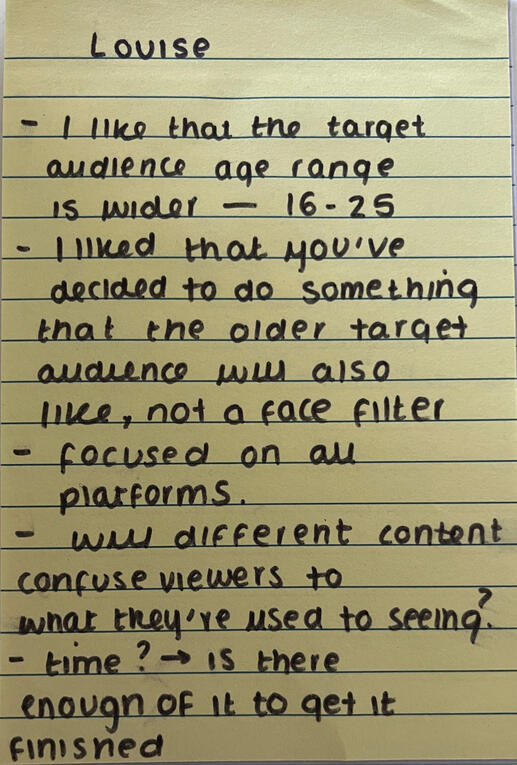 Louise
- I like that the target
audience age range
is wider — 16-25
- I liked that you've
decided to do something
that the older target
audience will also
like, not a face filter
- focused on all
platforms.
- will different content
confuse viewers to
what they're used to seeing?
- time? → is there
enough of it to get it
finished